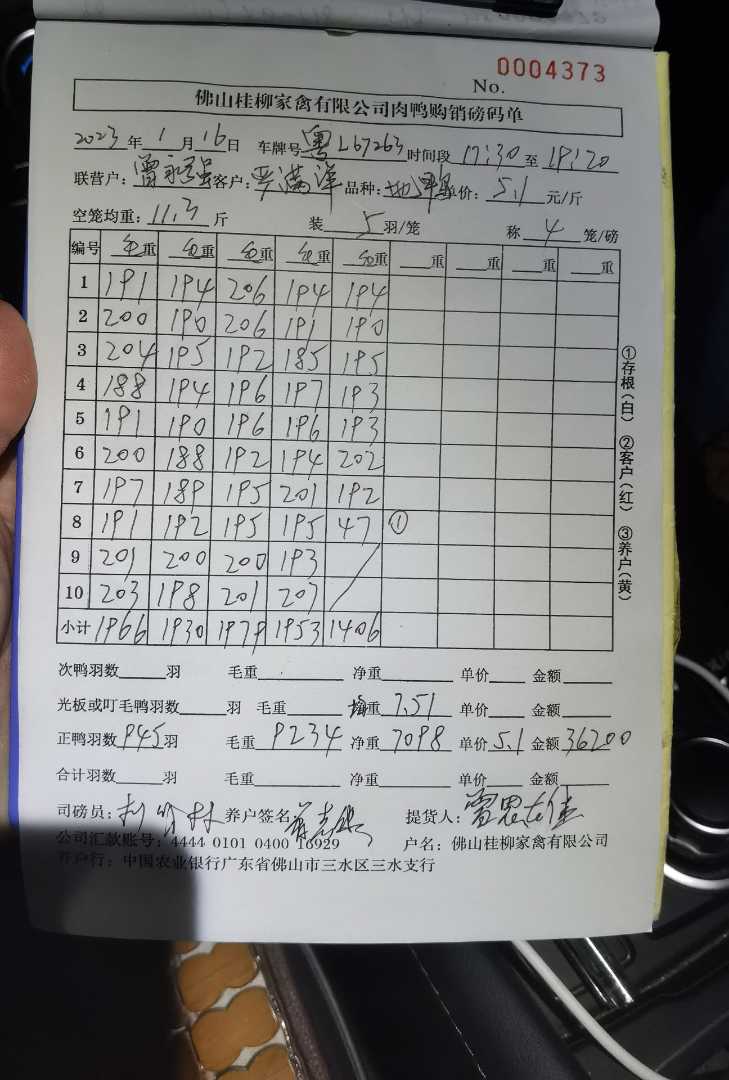 0004373
No.
佛山桂柳家禽有限公司肉鸭购销磅码单
2023年1月16日 车牌号粤L67263时间段17:30至19:20
联营户: 客户: 品种: 单价:5.1元/斤
空笼均重:11.3斤 装5羽/笼 称4笼/磅
编号 毛重 重 重 重 重 重 重 重 重
1 191 194 206 194 194
2 200 190 206 191 190
3 204 195 192 185 195
4 188 194 196 197 193
5 191 190 196 196 193
6 200 188 192 194 202
7 197 189 195 201 192
8 191 192 195 195 47 ①
9 201 200 200 193
10 203 198 201 207
小计 1966 1930 1979 1953 1406
次鸭羽数 羽 毛重 净重 单价 金额
光板或叮毛鸭羽数 羽 毛重 均重7.51 单价 金额
正鸭羽数945羽 毛重9234 净重7098 单价5.1 金额36200
合计羽数 羽 毛重 净重 单价 金额
司磅员: 养户签名: 提货人:
公司汇款账号:4444 0101 0400 16929 户名:佛山桂柳家禽有限公司
开户行:中国农业银行广东省佛山市三水区三水支行
①存根(白) ②客户(红) ③养户(黄)